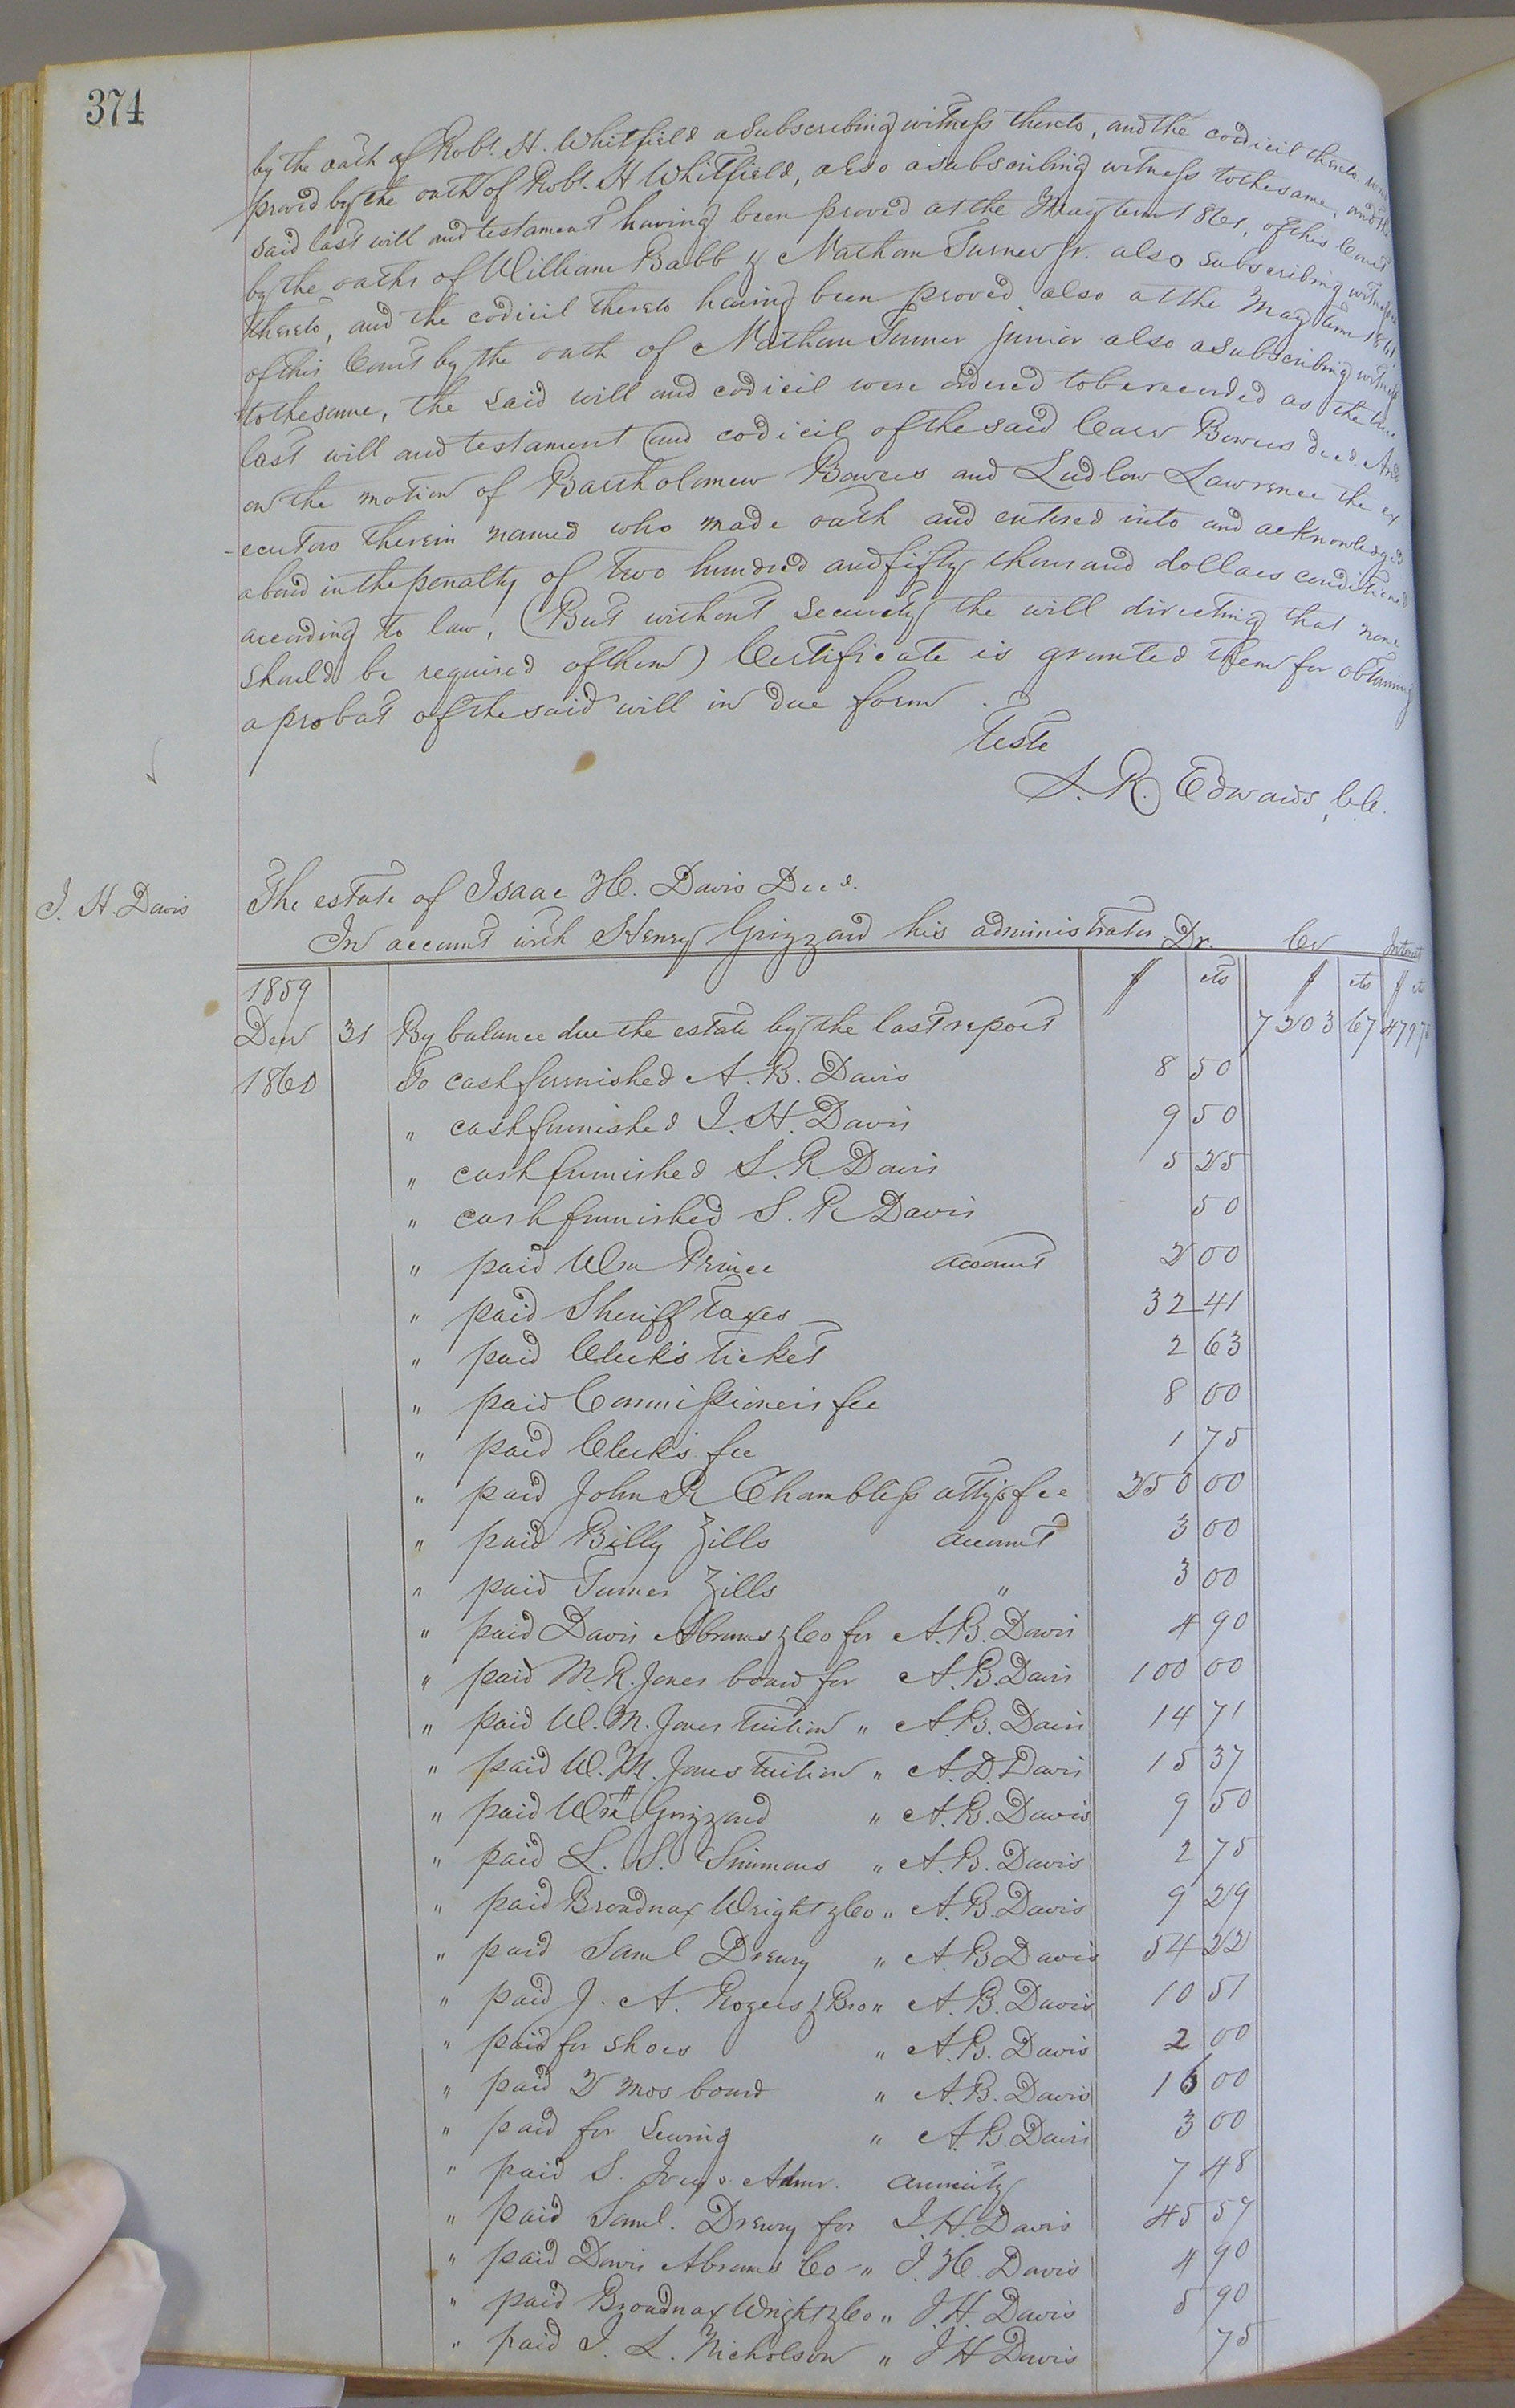 374
by the oath of Robt. H. Whitfield a subscribing witness thereto, and the codicil thereto was
proved by the oath of Robt. H Whitfield, also a subscribing witness to the same, and the
said last will and testament having been proved at the May term 1861, of this Court
by the oaths of William Babb & Nathan Turner Jr. also subscribing witnesses
thereto, and the codicil thereto having been proved also at the May term 1861
of this Court by the oath of Nathan Turner junior also a subscribing witness
to the same, the said will and codicil were ordered to be recorded as the true
last will and testament and codicil of the said Carr Bowers decd. And
on the motion of Bartholomew Bowers and Ludlow Lawrence the ex
-ecutors therein named who made oath and entered into and acknowledged
a bond in the penalty of two hundred and fifty thousand dollars conditioned
according to law, (But without security the will directing that none
should be required of them) Certificate is granted them for obtaining
a probat of the said will in due form.
Teste
L. R. Edwards, C.C.
I. H. Davis
The estate of Isaac H. Davis Decd.
In account with Henry Grizzard his administrator Dr. Cr Interest
1859 $ cts $ cts $ cts
Decr 31 By balance due the estate by the last report 7203 67 479 7
1860 To cash furnished A. B. Davis 8 50
" cash furnished I. H. Davis 9 50
" cash furnished S. R. Davis 5 25
" cash furnished S. R Davis 50
" paid Wm Prince account 2 00
" paid Sheriff Taxes 32 41
" paid Clerk's ticket 2 63
" paid Commissioners fee 8 00
" paid Clerk's fee 1 75
" paid John R Chambliss atty's fee 250 00
" paid Billy Zills account 3 00
" paid Turner Zills " 3 00
" paid Davis Abrams & Co for A. B. Davis 4 90
" paid M. R. Jones board for A. B. Davis 100 00
" paid W. M. Jones tuition " A. B. Davis 14 71
" paid W. M. Jones tuition " A. D. Davis 15 37
" paid Wm Grizzard " A. B. Davis 9 50
" paid L. S. Simmons " A. B. Davis 2 75
" paid Broadnax Wright & Co " A. B. Davis 9 29
" paid Saml Drewry " A. B Davis 54 22
" paid J. A. Rogers & Bro " A. B. Davis 10 51
" paid for shoes " A. B. Davis 2 00
" paid 2 mos board " A. B. Davis 16 00
" paid for sewing " A. B. Davis 3 00
" paid S. Admr. annuity 7 48
" paid Saml. Drewry for I. H. Davis 45 57
" paid Davis Abrams Co " I. H. Davis 4 90
" paid Broadnax Wright & Co " I. H. Davis 5 90
" paid I. L. Nicholson " I H Davis 75